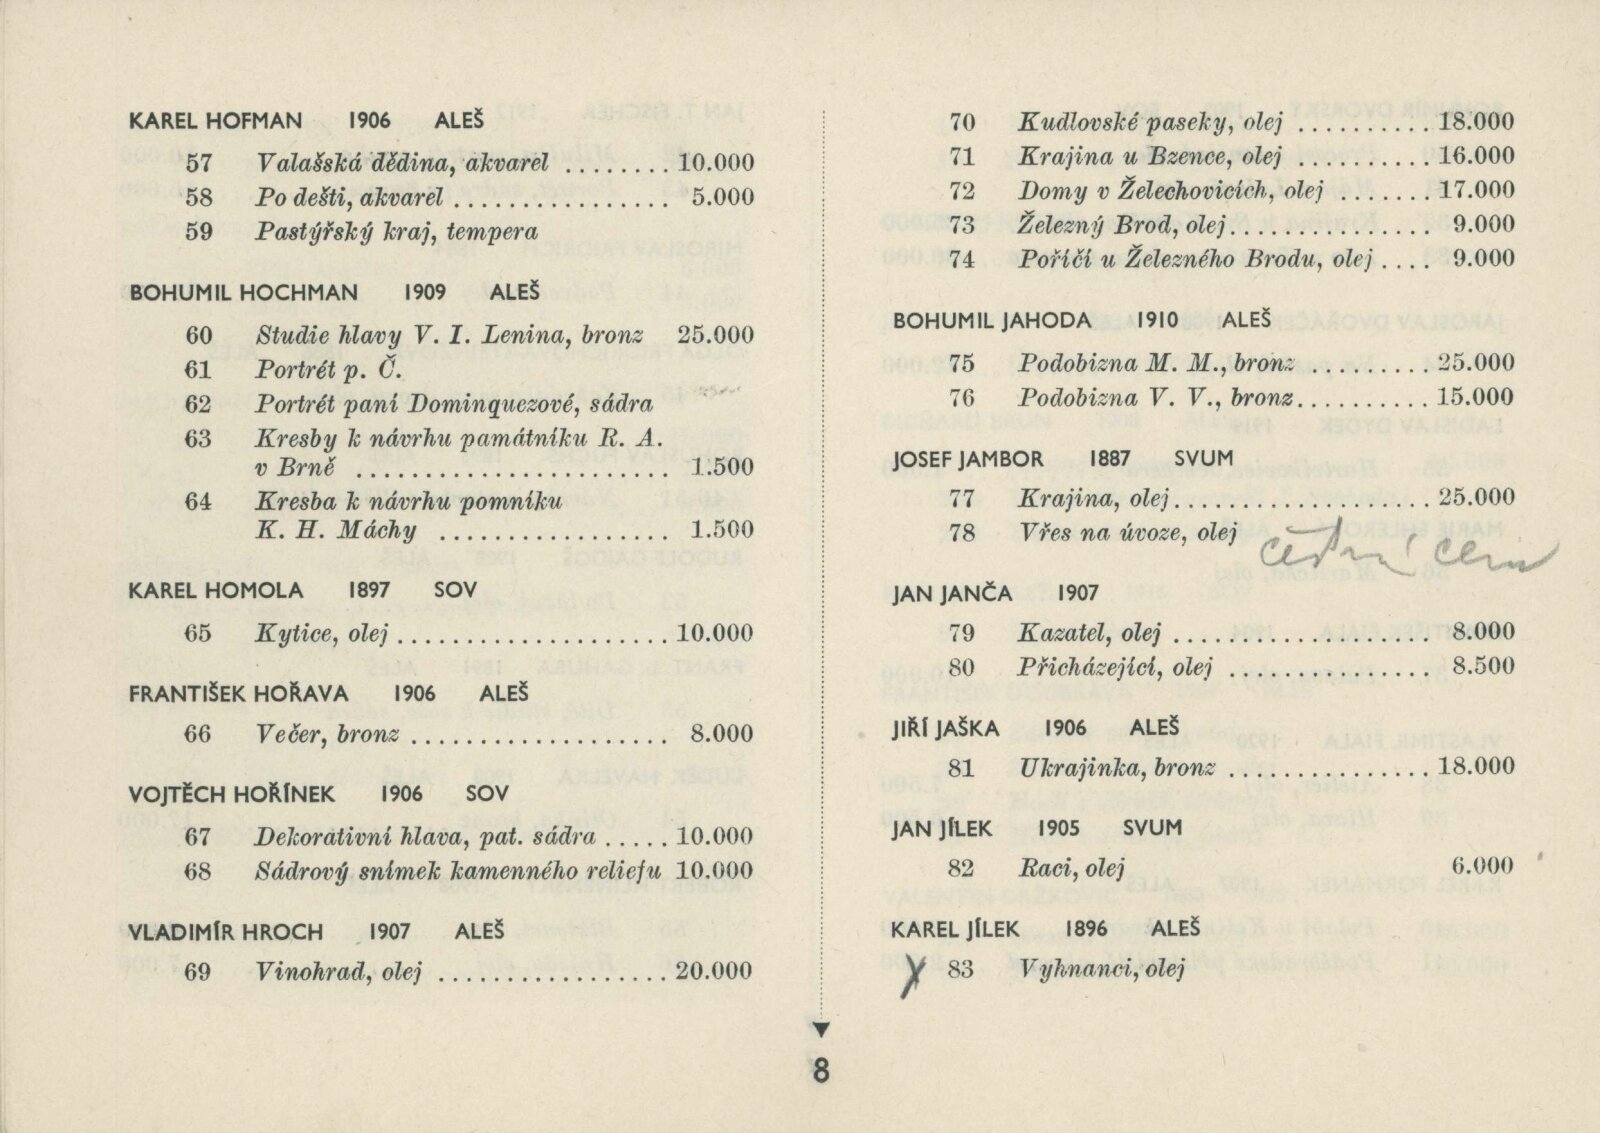 KAREL HOFMAN 1906 ALEŠ
57 Valašská dědina, akvarel ........ 10.000
58 Po dešti, akvarel ................ 5.000
59 Pastýřský kraj, tempera
BOHUMIL HOCHMAN 1909 ALEŠ
60 Studie hlavy V. I. Lenina, bronz 25.000
61 Portrét p. Č.
62 Portrét paní Dominquezové, sádra
63 Kresby k návrhu památníku R. A.
v Brně ....................... 1.500
64 Kresba k návrhu pomníku
K. H. Máchy ................. 1.500
KAREL HOMOLA 1897 SOV
65 Kytice, olej .................... 10.000
FRANTIŠEK HOŘAVA 1906 ALEŠ
66 Večer, bronz ................... 8.000
VOJTĚCH HOŘÍNEK 1906 SOV
67 Dekorativní hlava, pat. sádra ..... 10.000
68 Sádrový snímek kamenného reliefu 10.000
VLADIMÍR HROCH 1907 ALEŠ
69 Vinohrad, olej ................. 20.000
70 Kudlovské paseky, olej .......... 18.000
71 Krajina u Bzence, olej .......... 16.000
72 Domy v Želechovicích, olej ....... 17.000
73 Železný Brod, olej ............... 9.000
74 Poříčí u Železného Brodu, olej .... 9.000
BOHUMIL JAHODA 1910 ALEŠ
75 Podobizna M. M., bronz ......... 25.000
76 Podobizna V. V., bronz .......... 15.000
JOSEF JAMBOR 1887 SVUM
77 Krajina, olej ................... 25.000
78 Vřes na úvoze, olej
JAN JANČA 1907
79 Kazatel, olej ................... 8.000
80 Přicházející, olej ............... 8.500
JIŘÍ JAŠKA 1906 ALEŠ
81 Ukrajinka, bronz ............... 18.000
JAN JÍLEK 1905 SVUM
82 Raci, olej 6.000
KAREL JÍLEK 1896 ALEŠ
83 Vyhnanci, olej
8